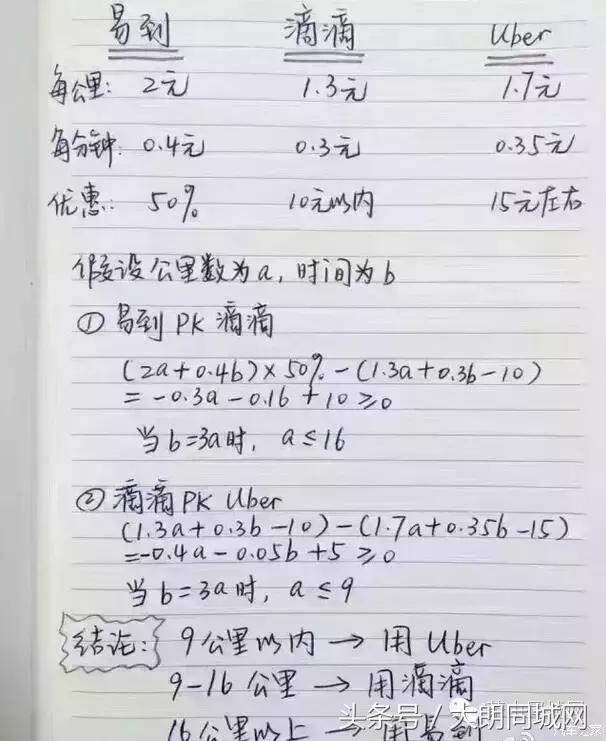 易到 滴滴 Uber
每公里: 2元 1.3元 1.7元
每分钟: 0.4元 0.3元 0.35元
优惠: 50% 10元以内 15元左右
假设公里数为a, 时间为b
① 易到 PK 滴滴
(2a+0.4b)×50%-(1.3a+0.3b-10)
=-0.3a-0.1b+10≥0
当b=3a时, a≤16
② 滴滴 PK Uber
(1.3a+0.3b-10)-(1.7a+0.35b-15)
=-0.4a-0.05b+5≥0
当b=3a时, a≤9
结论: 9公里以内→用Uber
9-16公里→用滴滴
16公里以上→用易到
头条号/大朗同城网
汽车之家